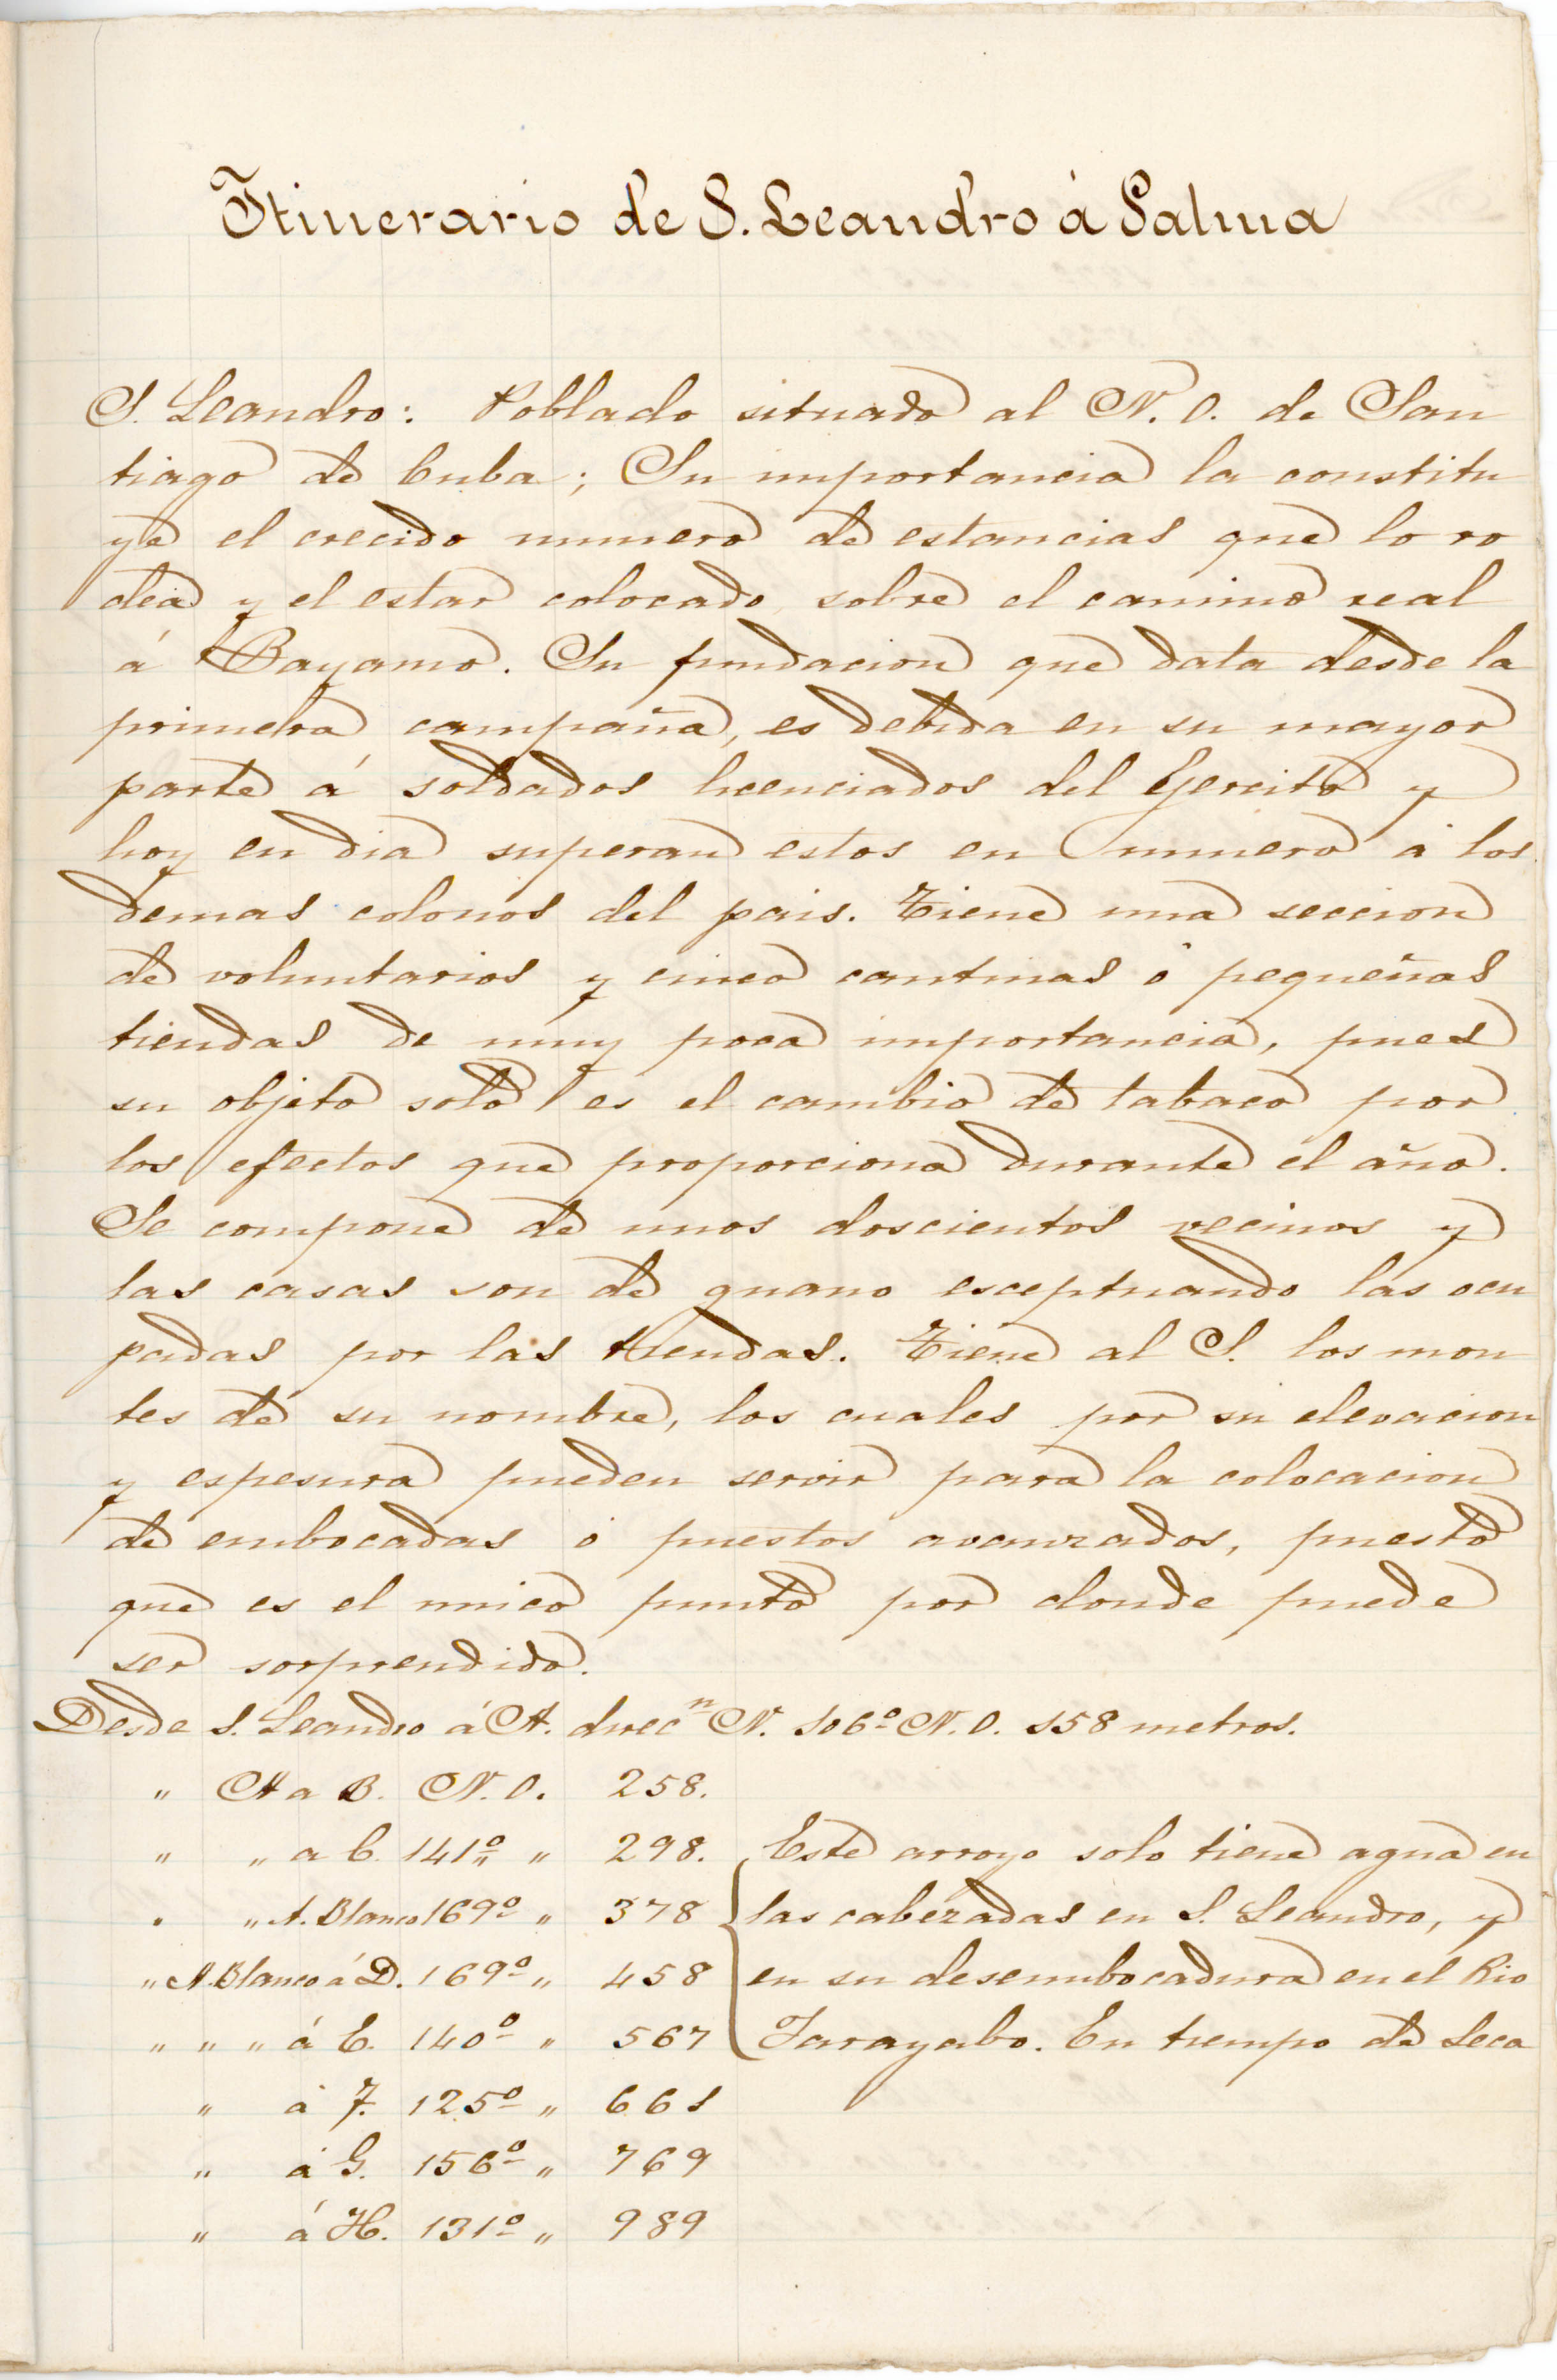 Itinerario de S. Leandro á Palma
S. Leandro: Poblado situado al N. O. de San
tiago de Cuba; Su importancia la constitu
ye el crecido numero de estancias que lo ro
dea y el estar colocado sobre el camino real
á Bayamo. Su fundacion que data desde la
primera campaña, es debida en su mayor
parte á soldados licenciados del Ejercito y
hoy en dia superan estos en numero á los
demas colonos del pais. Tiene una seccion
de voluntarios y cinco cantinas ó pequeñas
tiendas de muy poca importancia, pues
su objeto solo es el cambio de tabaco por
los efectos que proporciona durante el año.
Se compone de unos doscientos vecinos y
las casas son de guano esceptuando las ocu
padas por las tiendas. Tiene al S. los mon
tes de su nombre, los cuales por su elevacion
y espesura pueden servir para la colocacion
de embocadas ó puestos avanzados, puesto
que es el unico punto por donde puede
ser sorprendido.
Desde S. Leandro á A. direcn N. 106º N. O. 158 metros.
" A a B. N. O. 258.
" " a C. 141º " 298. Este arroyo solo tiene agua en
" " A. Blanco 169º " 378 las cabezadas en S. Leandro, y
" A. Blanco á D. 169º " 458 en su desembocadura en el Rio
" " " á E. 140º " 567 Jarayabo. En tiempo de seca
" á F. 125º " 661
" á G. 156º " 769
" á H. 131º " 989